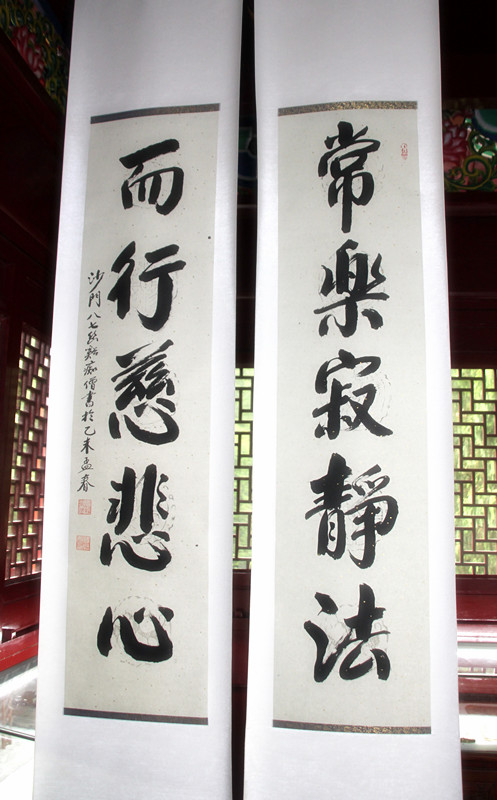 常樂寂靜法
而行慈悲心
沙門八七痴僧書於乙未孟春